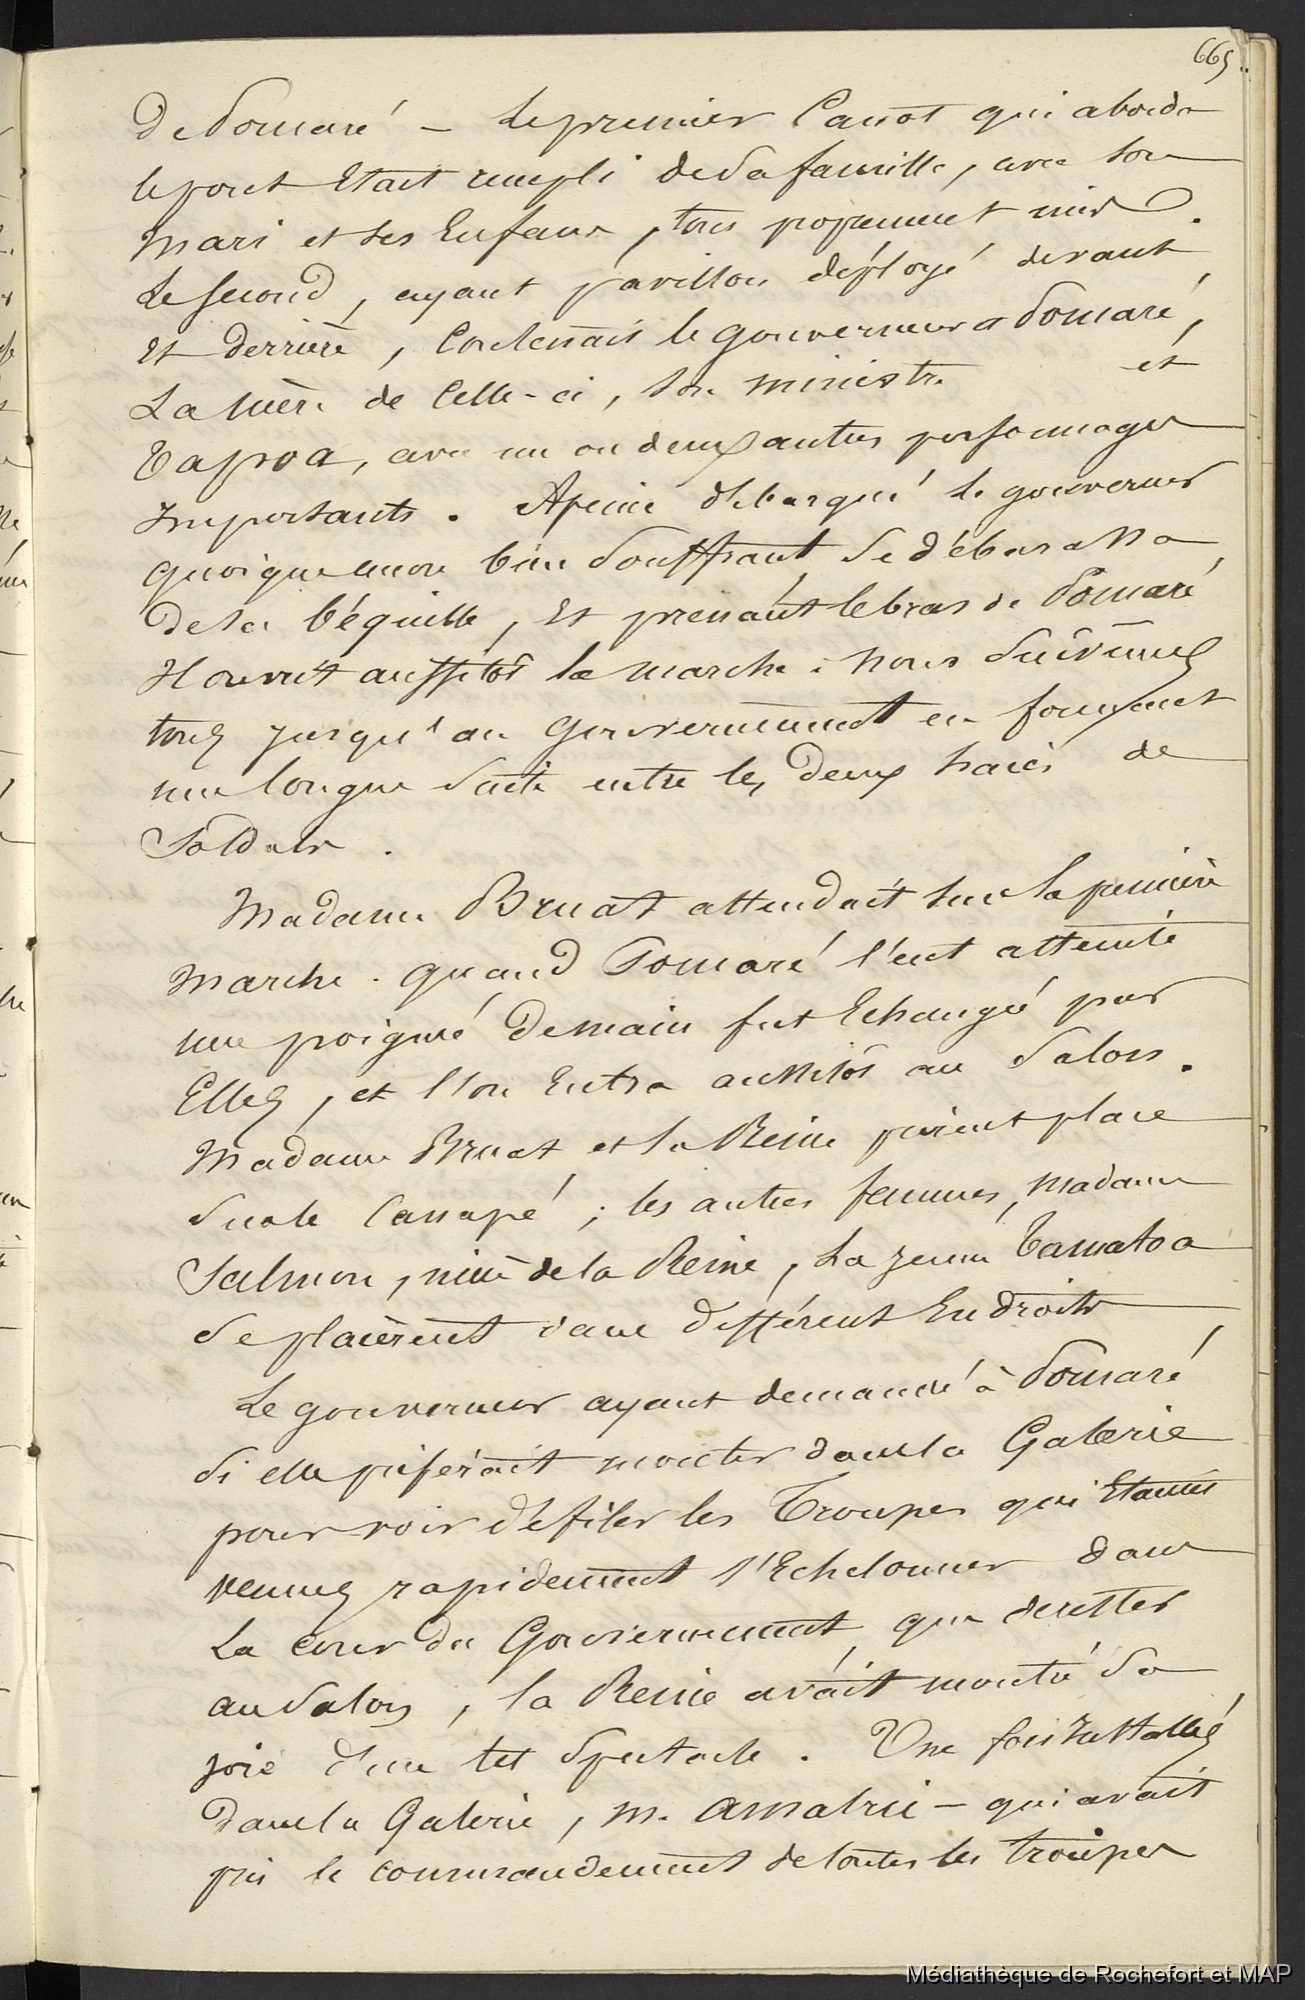 665
de Pomaré – Le premier Canot qui aborda
le port Etait rempli de sa famille, avec son
Mari et ses Enfans, tous proprement mis.
Le second, ayant pavillon déployé devant
Et derrière, Contenait le gouverneur a Pomaré,
La Mère de Celle-ci, son ministre et
Tapoa, avec un ou deux autres personnages
Importants. Apeine débarqué le gouverneur
quoique encore bien Souffrant, Se débarassa
de sa béquille, Et prenant le bras de Pomaré
Il ouvrit aussitôt la marche. Nous Suivimes
tous jusqu'au Gouvernement en formant
une longue Suite entre les deux haies de
Soldats.
Madame Bruat attendait sur la première
Marche. quand Pomaré l'eut atteinte
une poignée de main fut Echangée par
Elles, et l'on Entra aussitôt au Salon.
Madame Bruat et la Reine prirent place
Sur le Canapé; les autres femmes, Madame
Salmon, nièce de la Reine, La jeune Tamatoa
Se placèrent dans different Endroits
Le gouverneur ayant demandé à Pomaré
Si elle préférait monter dans la Galerie
pour voir défiler les Troupes qui Etaient
venues rapidement s'Echelonner dans
La cour du Gouvernement, que de rester
au Salon, la Reine avait montré Sa
joie d'un tel Spectacle. Une fois Installés
dans la Galerie, M. Amalric – qui avait
pris le commandement de toutes les troupes
Médiathèque de Rochefort et MAP